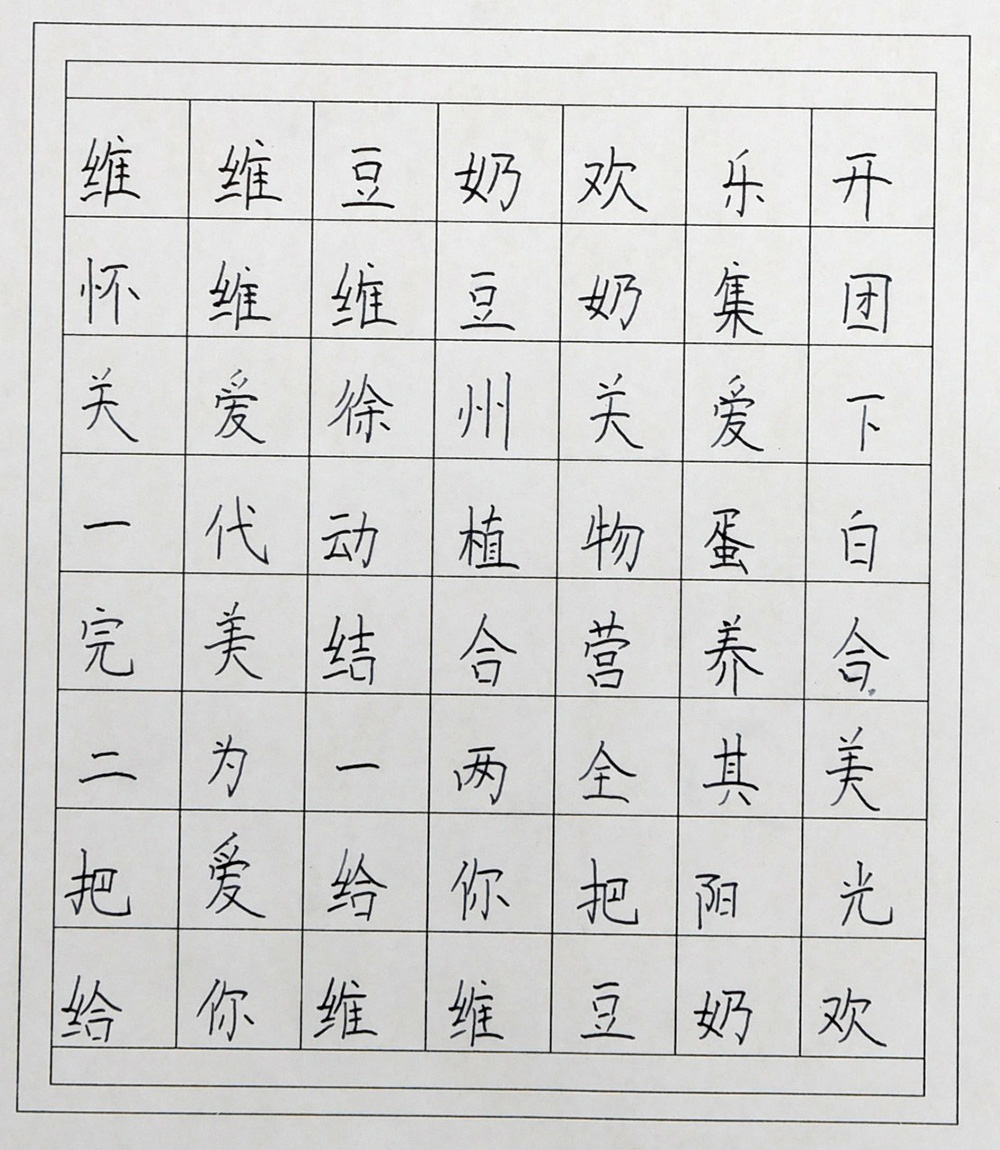 维维豆奶欢乐开
怀维维豆奶集团
关爱徐州关爱下
一代动植物蛋白
完美结合营养合
二为一两全其美
把爱给你把阳光
给你维维豆奶欢